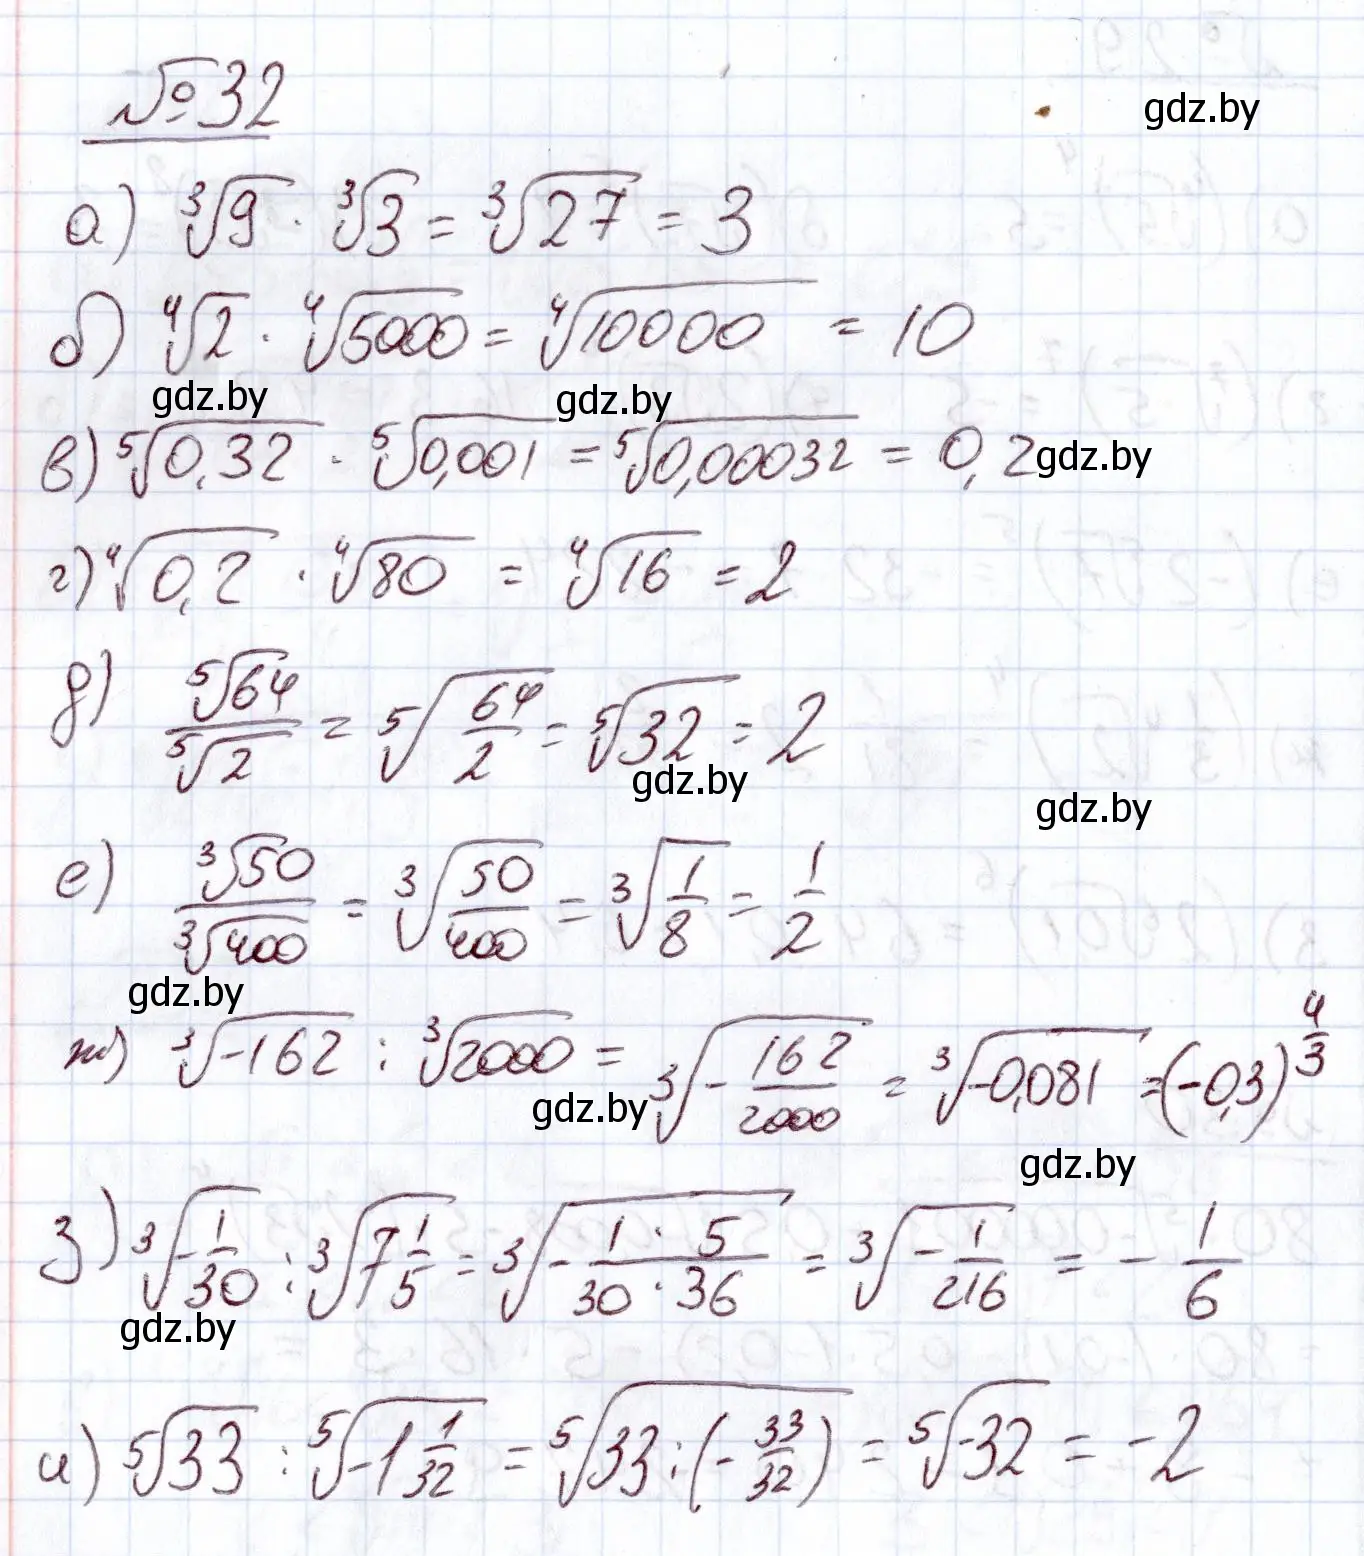 №32
gdz.by
а) ∛9 · ∛3 = ∛27 = 3
б) ∜2 · ∜5000 = ∜10000 = 10
gdz.by gdz.by
в) ⁵√0,32 · ⁵√0,001 = ⁵√0,00032 = 0,2 gdz.by
г) ∜0,2 · ∜80 = ∜16 = 2
д) ⁵√64 / ⁵√2 = ⁵√(64/2) = ⁵√32 = 2
gdz.by gdz.by
е) ∛50 / ∛400 = ∛(50/400) = ∛(1/8) = 1/2
gdz.by
ж) ∛-162 : ∛2000 = ∛(-162/2000) = ∛-0,081 = (-0,3)^(4/3)
gdz.by gdz.by
з) ∛(-1/30) : ∛(7 1/5) = ∛(-(1 · 5)/(30 · 36)) = ∛(-1/216) = -1/6
gdz.by
и) ⁵√33 : ⁵√(-1 1/32) = ⁵√(33 : (-33/32)) = ⁵√-32 = -2